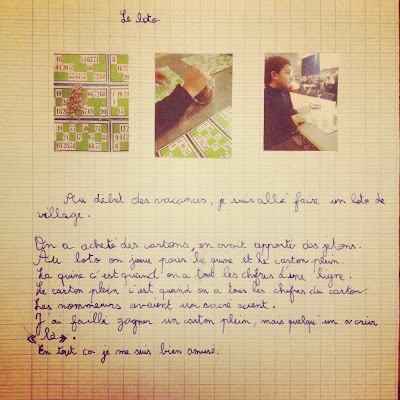 Le loto
Au début des vacances, je suis allé faire un loto de
village.
On a acheté des cartons, on avait apporté des jetons.
Au loto on joue pour la quine et le carton plein.
La quine c'est quand on a tout les chifres d'une ligne.
Le carton plein c'est quand on a tous les chifres du carton.
Les nommeurs avaient un sacré accent.
J'ai failli gagner un carton plein, mais quelqu'un a crier
« là » .
En tout ca je me suis bien amusé.